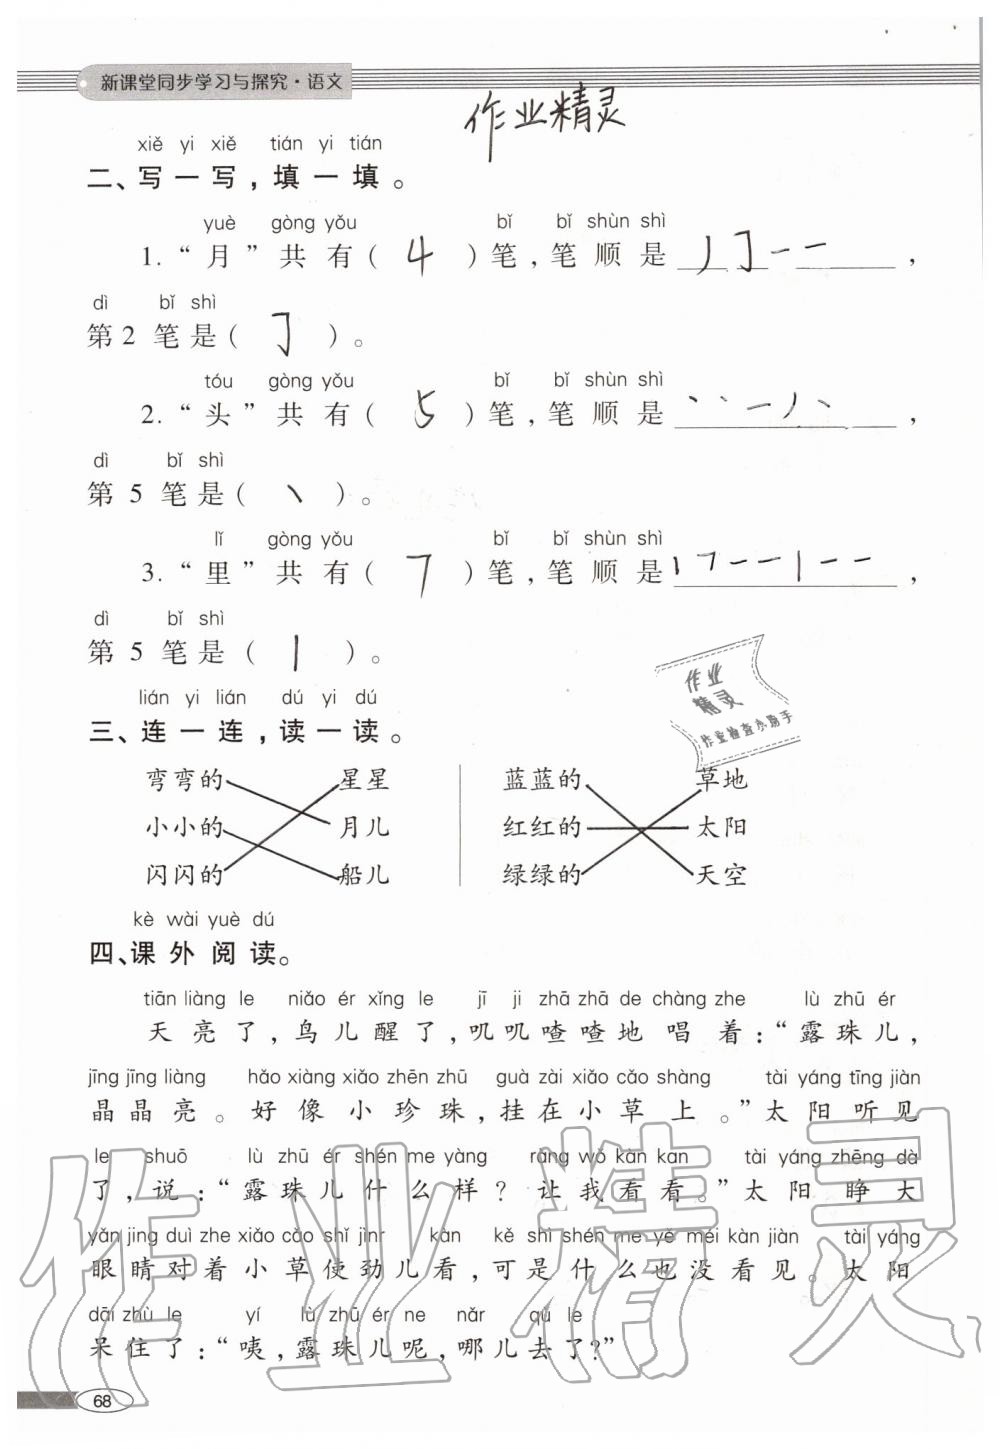 新课堂同步学习与探究·语文
作业精灵
xiě yi xiě tián yi tián
二、写一写，填一填。
yuè gòng yǒu bǐ bǐ shùn shì
1.“月”共有( 4 )笔，笔顺是丿㇆一一，
dì bǐ shì
第2笔是( ㇆ )。
tóu gòng yǒu bǐ bǐ shùn shì
2.“头”共有( 5 )笔，笔顺是丶丶一丿丶，
dì bǐ shì
第5笔是( 丶 )。
lǐ gòng yǒu bǐ bǐ shùn shì
3.“里”共有( 7 )笔，笔顺是丨㇕一一丨一一，
dì bǐ shì
第5笔是( 丨 )。
lián yi lián dú yi dú
三、连一连，读一读。
弯弯的 星星 蓝蓝的 草地
小小的 月儿 红红的 太阳
闪闪的 船儿 绿绿的 天空
作业
精灵
作业检查小助手
kè wài yuè dú
四、课外阅读。
tiān liàng le niǎo ér xǐng le jī ji zhā zhā de chàng zhe lù zhū ér
天亮了，鸟儿醒了，叽叽喳喳地唱着：“露珠儿，
jīng jīng liàng hǎo xiàng xiǎo zhēn zhū guà zài xiǎo cǎo shàng tài yáng tīng jiàn
晶晶亮。好像小珍珠，挂在小草上。”太阳听见
le shuō lù zhū ér shén me yàng ràng wǒ kàn kan tài yáng zhēng dà
了，说：“露珠儿什么样？让我看看。”太阳睁大
yǎn jing duì zhe xiǎo cǎo shǐ jìnr kàn kě shì shén me yě méi kàn jiàn tài yáng
眼睛对着小草使劲儿看，可是什么也没看见。太阳
dāi zhù le yí lù zhū ér ne nǎr qù le
呆住了：“咦，露珠儿呢，哪儿去了?”
作业精灵
68